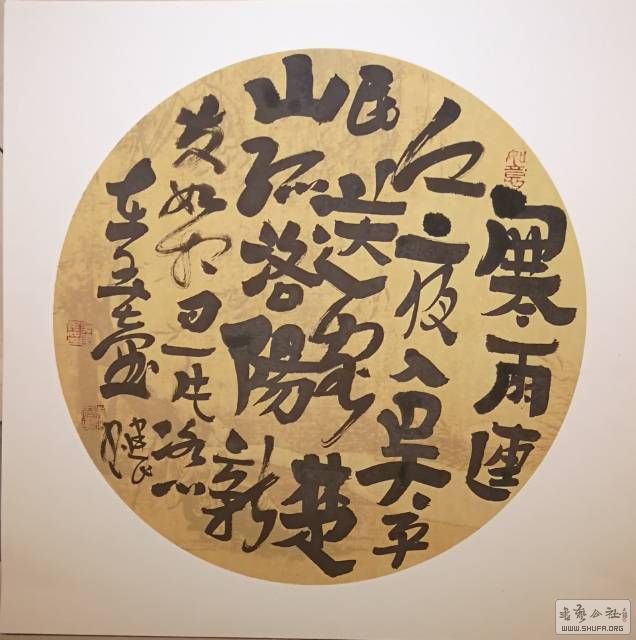 寒雨連
江夜入吴平
明送客楚
山孤洛陽新
友如相问一片冰心
在玉壶
书艺公社
WWW.SHUFA.ORG